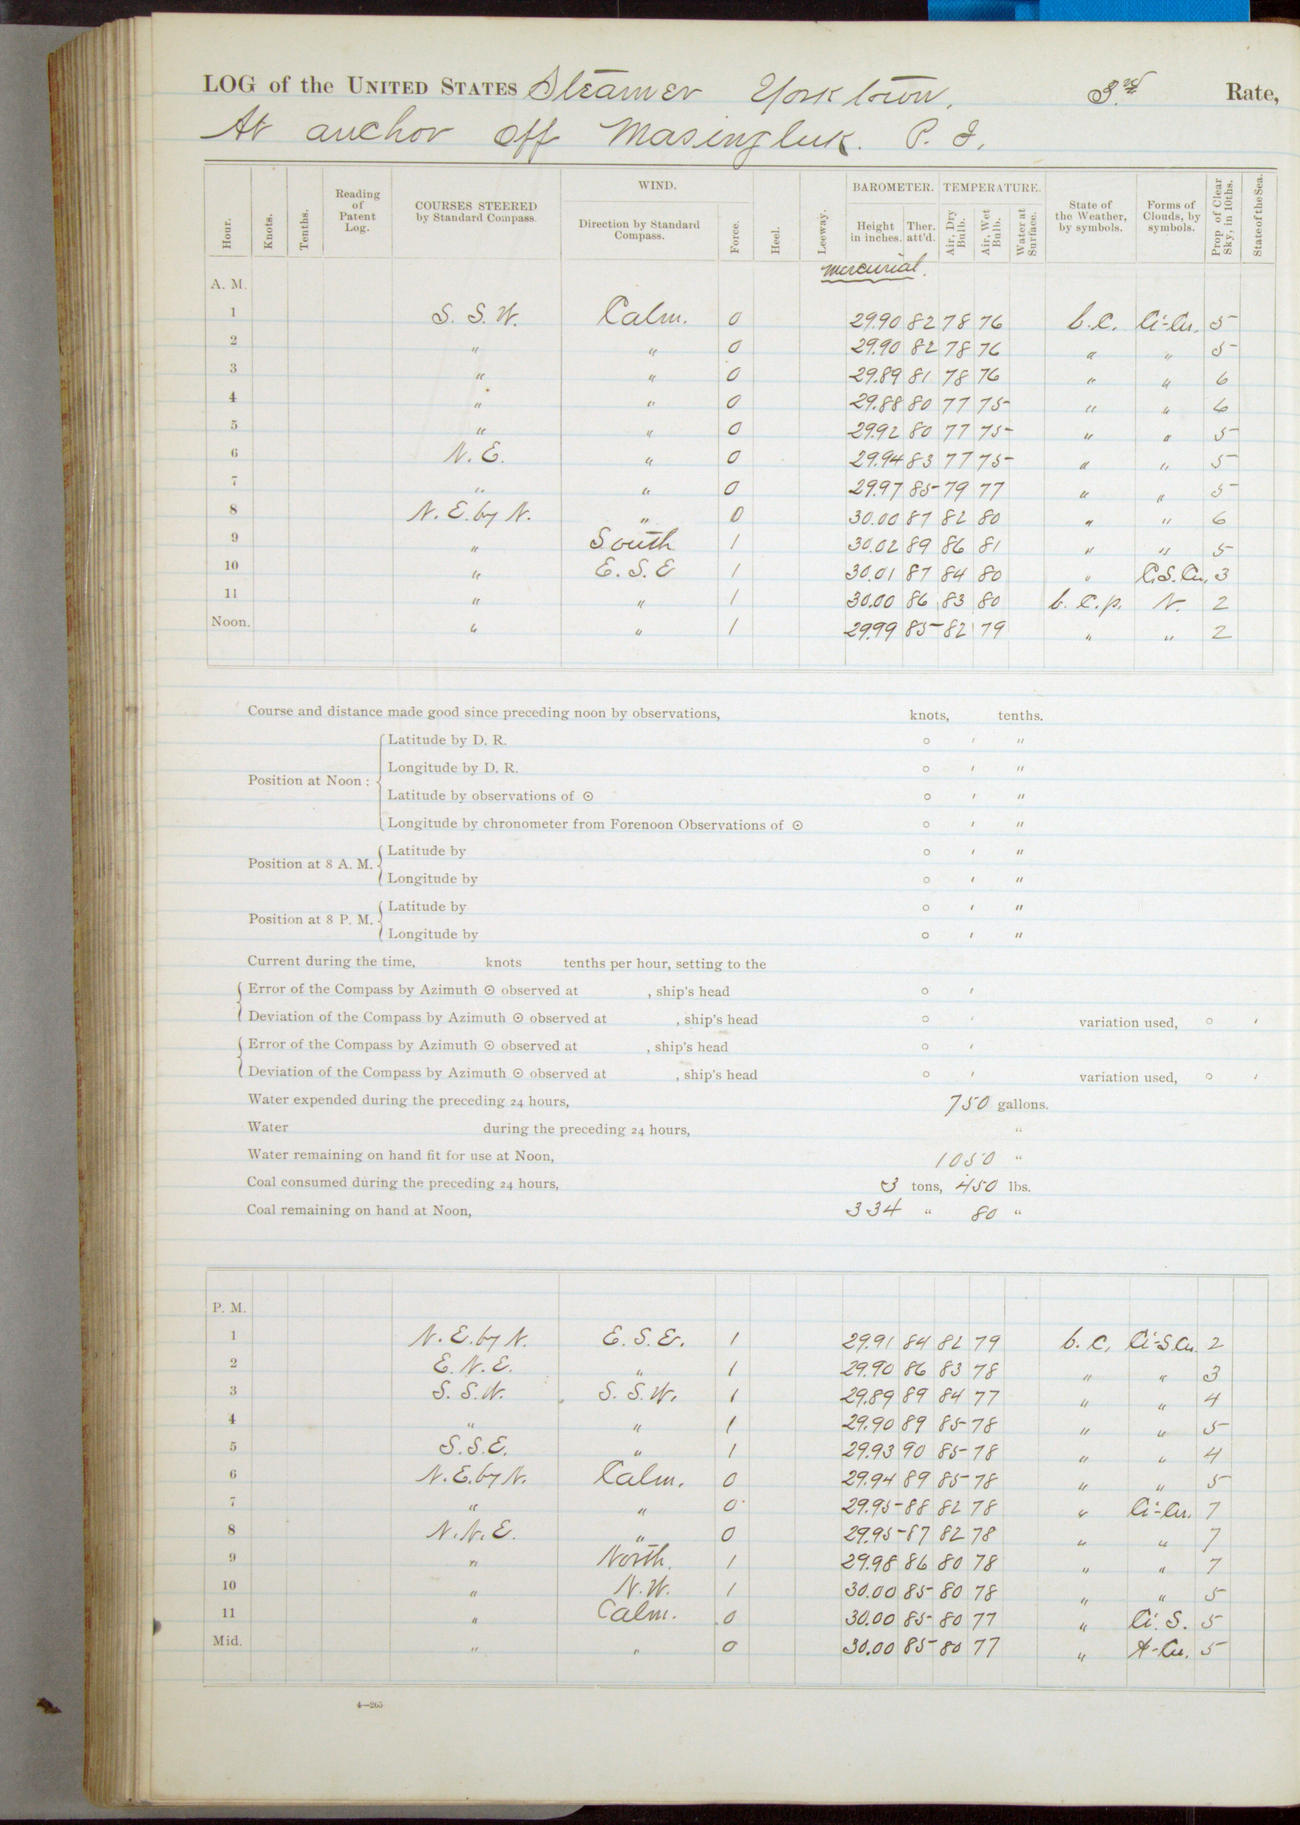 LOG of the UNITED STATES Steamer Yorktown, 3rd Rate,
At anchor off Masingluk. P. I.
Hour. Knots. Tenths. Reading of Patent Log. COURSES STEERED by Standard Compass. WIND. Direction by Standard Compass. Force. Heel. Leeway. BAROMETER. Height in inches. Ther. att'd. TEMPERATURE. Air, Dry Bulb. Air, Wet Bulb. Water at Surface. State of the Weather, by symbols. Forms of Clouds, by symbols. Prop. of Clear Sky, in 10ths. State of the Sea.
mercurial.
A. M.
1 S. S. W. Calm. 0 29.90 82 78 76 b.c. Ci-Cu. 5
2 " " 0 29.90 82 78 76 " " 5
3 " " 0 29.89 81 78 76 " " 6
4 " " 0 29.88 80 77 75 " " 6
5 " " 0 29.92 80 77 75 " " 5
6 N. E. " 0 29.94 83 77 75 " " 5
7 " " 0 29.97 85 79 77 " " 5
8 N. E. by N. " 0 30.00 87 82 80 " " 6
9 " South 1 30.02 89 86 81 " " 5
10 " E. S. E 1 30.01 87 84 80 " C.S. Cu. 3
11 " " 1 30.00 86 83 80 b.c.p. N. 2
Noon. " " 1 29.99 85 82 79 " " 2
Course and distance made good since preceding noon by observations, knots, tenths.
Position at Noon :
Latitude by D. R. ° ′ ″
Longitude by D. R. ° ′ ″
Latitude by observations of ⊙ ° ′ ″
Longitude by chronometer from Forenoon Observations of ⊙ ° ′ ″
Position at 8 A. M.
Latitude by ° ′ ″
Longitude by ° ′ ″
Position at 8 P. M.
Latitude by ° ′ ″
Longitude by ° ′ ″
Current during the time, knots tenths per hour, setting to the
Error of the Compass by Azimuth ⊙ observed at , ship's head ° ′
Deviation of the Compass by Azimuth ⊙ observed at , ship's head ° ′ variation used, ° ′
Error of the Compass by Azimuth ⊙ observed at , ship's head ° ′
Deviation of the Compass by Azimuth ⊙ observed at , ship's head ° ′ variation used, ° ′
Water expended during the preceding 24 hours, 750 gallons.
Water during the preceding 24 hours, "
Water remaining on hand fit for use at Noon, 1050 "
Coal consumed during the preceding 24 hours, 3 tons, 450 lbs.
Coal remaining on hand at Noon, 334 " 80 "
P. M.
1 N. E. by N. E. S. E. 1 29.91 84 82 79 b.c. Ci-S.Cu. 2
2 E. N. E. " 1 29.90 86 83 78 " " 3
3 S. S. W. S. S. W. 1 29.89 89 84 77 " " 4
4 " " 1 29.90 89 85 78 " " 5
5 S. S. E. " 1 29.93 90 85 78 " " 4
6 N. E. by N. Calm. 0 29.94 89 85 78 " " 5
7 " " 0 29.95 88 82 78 " Ci-Cu. 7
8 N. N. E. " 0 29.95 87 82 78 " " 7
9 " North. 1 29.98 86 80 78 " " 7
10 " N. W. 1 30.00 85 80 78 " " 5
11 " Calm. 0 30.00 85 80 77 " Ci. S. 5
Mid. " " 0 30.00 85 80 77 " A-Cu. 5
4—265